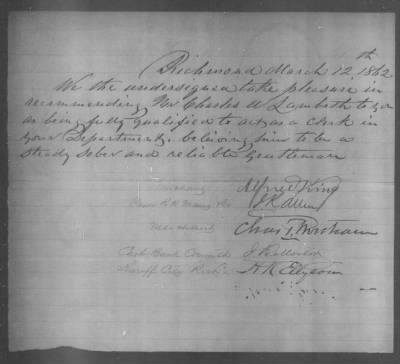 Richmond March 12th 1862
We the undersigned take pleasure in
recommending Mr Charles W Lambeth to you
as being fully qualified to act as a Clerk in
your Department, believing him to be a
steady sober and reliable Gentleman
Alfred King
J R Allen
Merchant Chas T Wortham
Bank
Sheriff City Rich. H K Ellyson